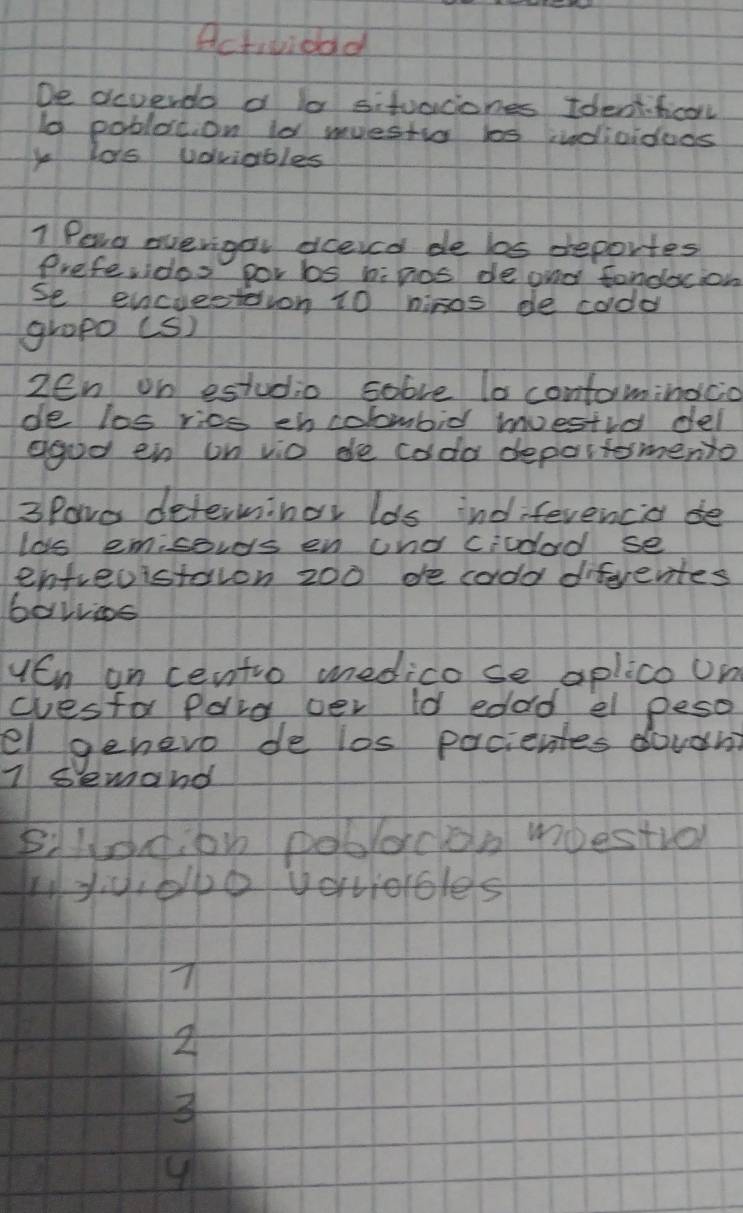 Actividad
De acuerdo a la situaciones Identificar
la poblacion la muestra los indioidoos
y las variables
1 Para averigar acerca de los deportes
Preferidos por los niños de una fondacion
se encuestaron 10 niños de cada
gropo (5)
2En un estudio sobre la contaminacio
de los rios en colombia muestra del
agua en un rio de cada departamento
3Para determinar las indiferencia de
las emisoras en una ciudad se
entrevistaron 200 de cada diferentes
barrios
4En un centro medico se aplico Un
cuesta Para ver la edad el peso
el genero de los pacientes duran
1 semana
Situacion poblacion muestra
variables
1
2
3
4